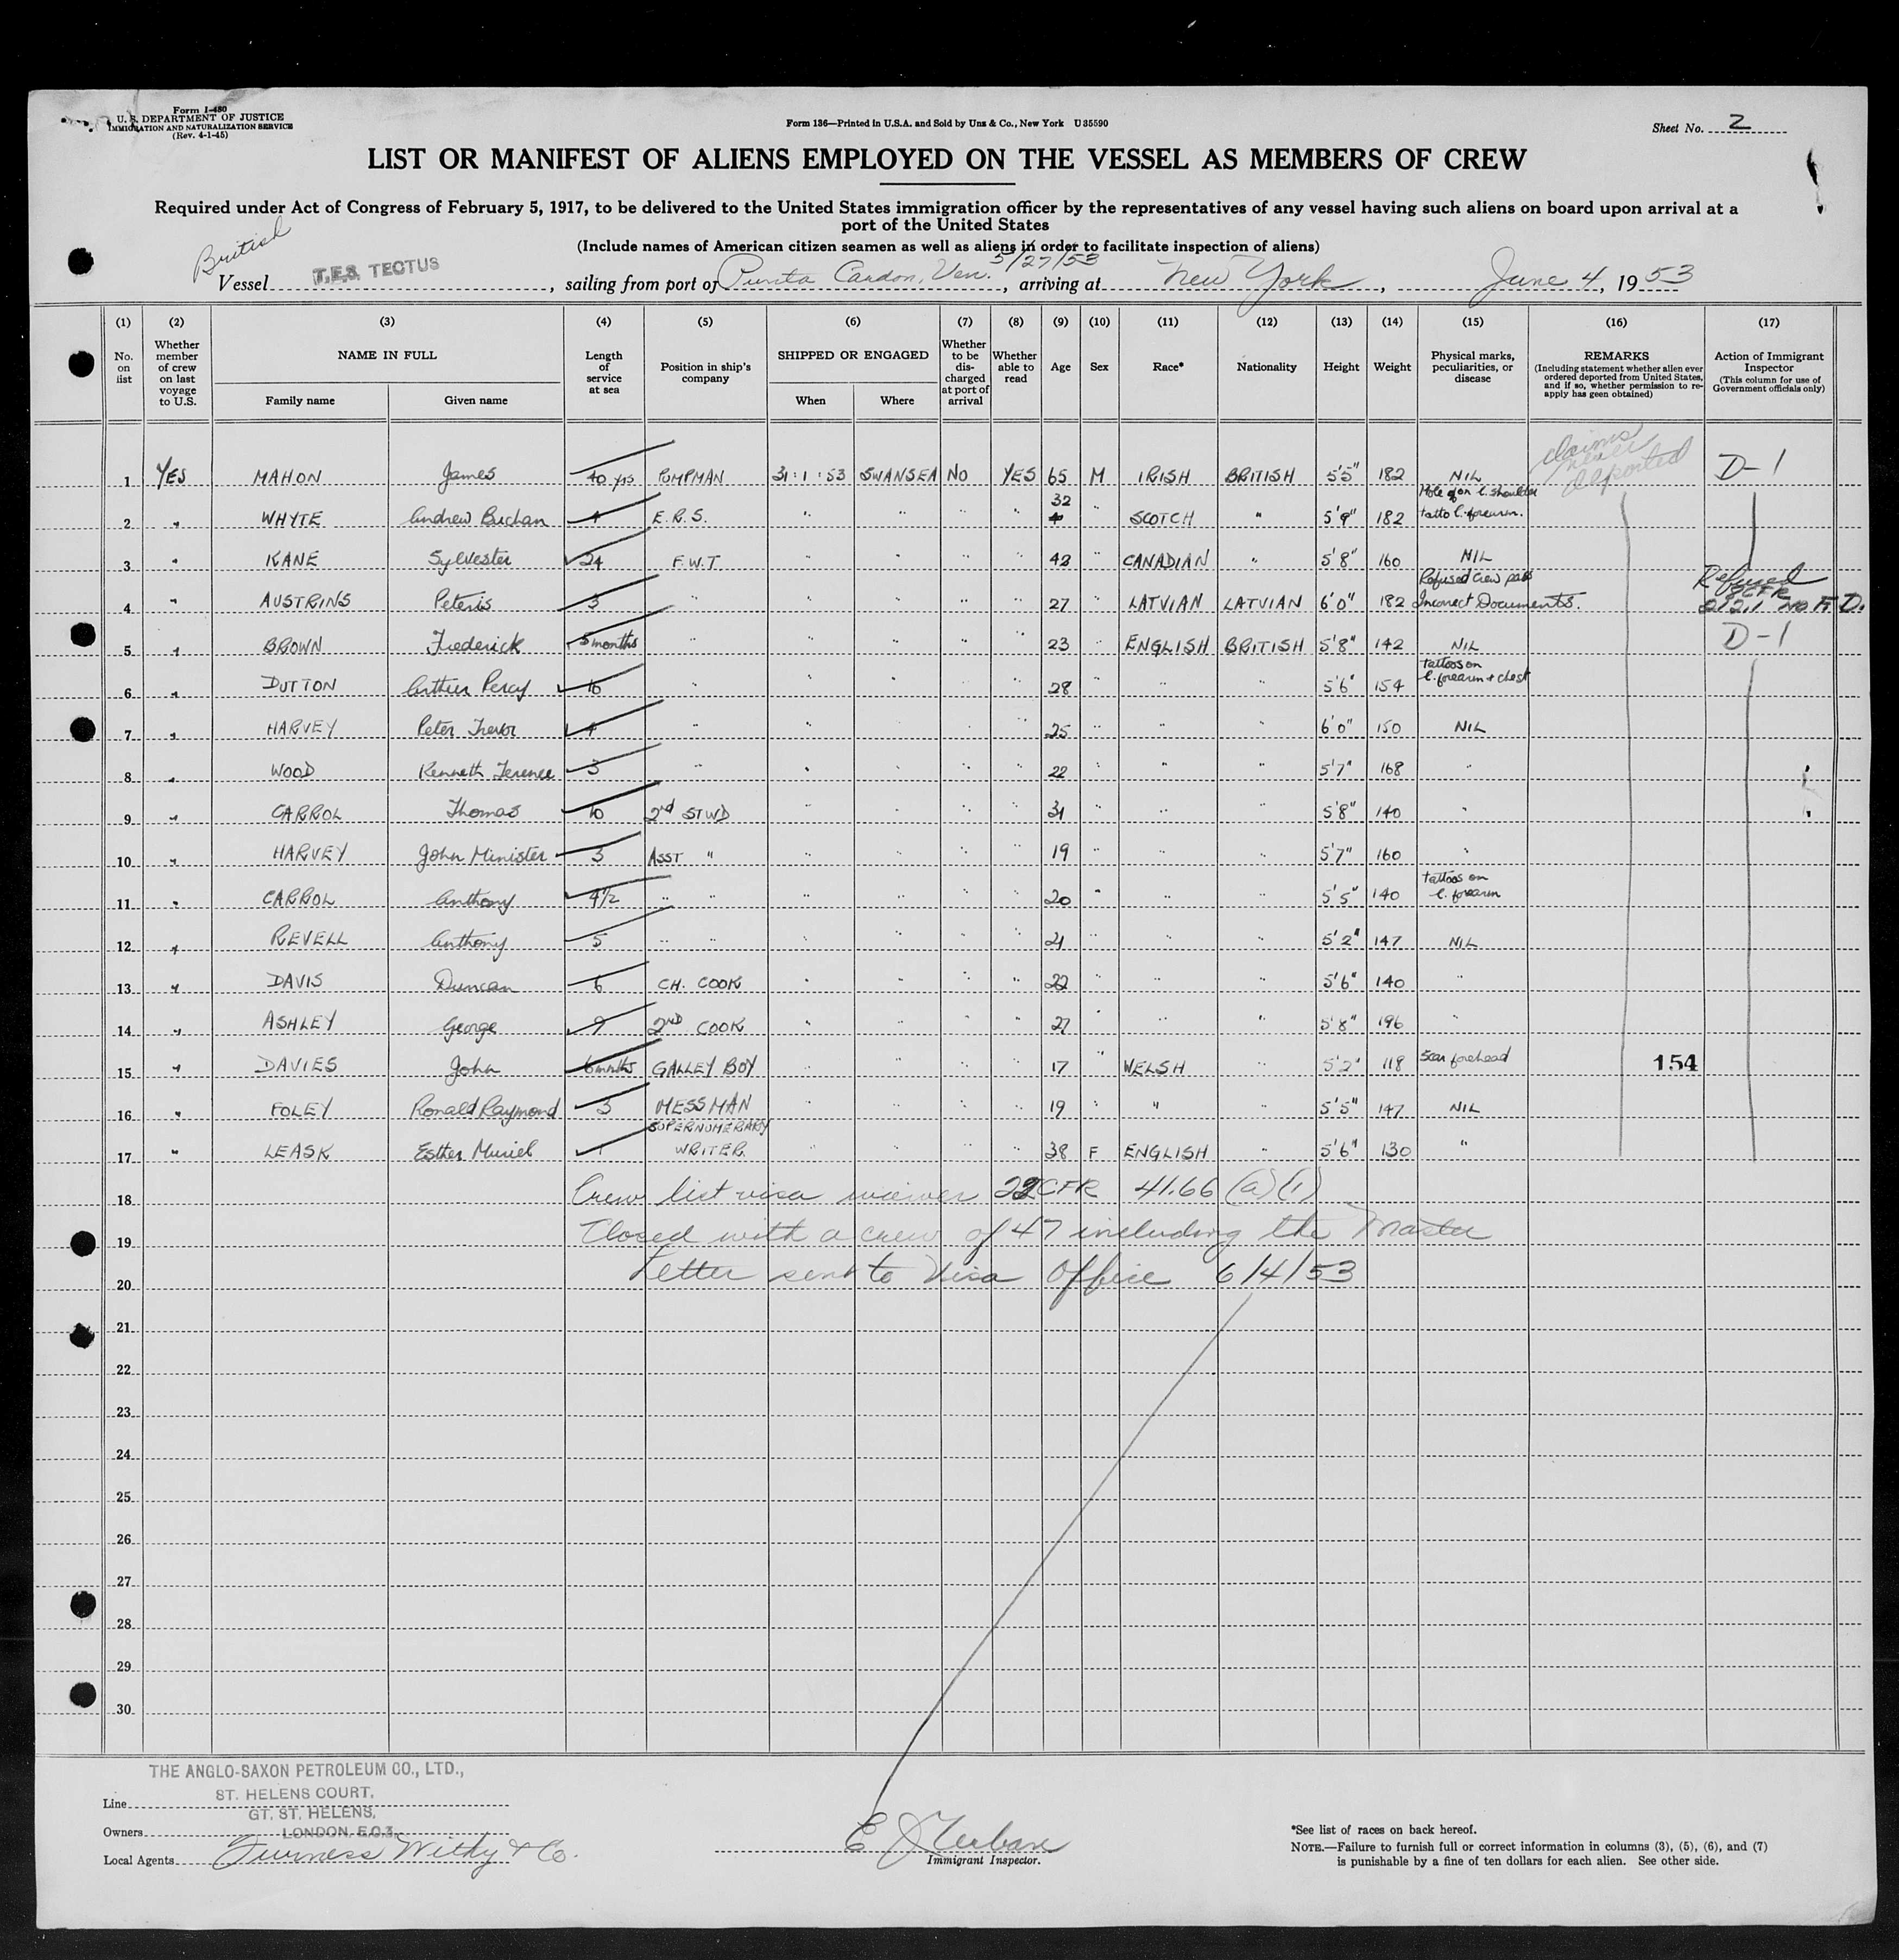 Form I-480
U. S. DEPARTMENT OF JUSTICE
IMMIGRATION AND NATURALIZATION SERVICE
(Rev. 4-1-45)
Form 136—Printed in U.S.A. and Sold by Unz & Co., New York U 35590
Sheet No. 2
LIST OR MANIFEST OF ALIENS EMPLOYED ON THE VESSEL AS MEMBERS OF CREW
Required under Act of Congress of February 5, 1917, to be delivered to the United States immigration officer by the representatives of any vessel having such aliens on board upon arrival at a
port of the United States
(Include names of American citizen seamen as well as aliens in order to facilitate inspection of aliens)
British
5/27/53
Vessel T.E.S. TECTUS, sailing from port of Punta Cardon, Ven., arriving at New York, June 4, 1953
(1) (2) (3) (4) (5) (6) (7) (8) (9) (10) (11) (12) (13) (14) (15) (16) (17)
No. on list
Whether member of crew on last voyage to U.S.
NAME IN FULL
Family name
Given name
Length of service at sea
Position in ship's company
SHIPPED OR ENGAGED
When
Where
Whether to be discharged at port of arrival
Whether able to read
Age
Sex
Race*
Nationality
Height
Weight
Physical marks, peculiarities, or disease
REMARKS
(Including statement whether alien ever ordered deported from United States, and if so, whether permission to re-apply has geen obtained)
Action of Immigrant Inspector
(This column for use of Government officials only)
1 YES MAHON James 40 yrs PUMPMAN 31:1:53 SWANSEA NO YES 65 M IRISH BRITISH 5'5" 182 NIL claims never deported D-1
2 " WHYTE Andrew Buchan 4 E.R.S. " " " " 32 " SCOTCH " 5'9" 182 Mole on l. shoulder tatto l. forearm.
3 " KANE Sylvester 24 F.W.T. " " " " 42 " CANADIAN " 5'8" 160 NIL
4 " AUSTRINS Peteris 3 " " " " " 27 " LATVIAN LATVIAN 6'0" 182 Refused Crew pass Incorrect Documents. Refused 8CFR 212.1 no F.D.
5 " BROWN Frederick 5 months " " " " " 23 " ENGLISH BRITISH 5'8" 142 NIL D-1
6 " DUTTON Arthur Percy 10 " " " " " 28 " " " 5'6" 154 tattoos on l. forearm + chest
7 " HARVEY Peter Trevor 4 " " " " " 25 " " " 6'0" 150 NIL
8 " WOOD Kenneth Terence 3 " " " " " 22 " " " 5'7" 168 "
9 " CARROL Thomas 10 2nd STWD " " " " 31 " " " 5'8" 140 "
10 " HARVEY John Minister 3 ASST " " " " " 19 " " " 5'7" 160 "
11 " CARROL Anthony 4½ " " " " " " 20 " " " 5'5" 140 tattoos on l. forearm
12 " REVELL Anthony 5 " " " " " " 21 " " " 5'2" 147 NIL
13 " DAVIS Duncan 6 CH. COOK " " " " 22 " " " 5'6" 140 "
14 " ASHLEY George 9 2ND COOK " " " " 27 " " " 5'8" 196 "
15 " DAVIES John 6 months GALLEY BOY " " " " 17 " WELSH " 5'2" 118 Scar forehead 154
16 " FOLEY Ronald Raymond 3 MESSMAN " " " " 19 " " " 5'5" 147 NIL
17 " LEASK Esther Muriel 1 SUPERNUMERARY WRITER. " " " " 38 F ENGLISH " 5'6" 130 "
18 Crew list visa waiver 22CFR 41.66 (a)(1)
19 Closed with a crew of 47 including the Master
20 Letter sent to Visa Office 6/4/53
21
22
23
24
25
26
27
28
29
30
THE ANGLO-SAXON PETROLEUM CO., LTD.,
ST. HELENS COURT,
Line
GT. ST. HELENS,
Owners LONDON, E.C.3.
Local Agents Furness Withy & Co.
Immigrant Inspector.
*See list of races on back hereof.
NOTE.—Failure to furnish full or correct information in columns (3), (5), (6), and (7)
is punishable by a fine of ten dollars for each alien. See other side.